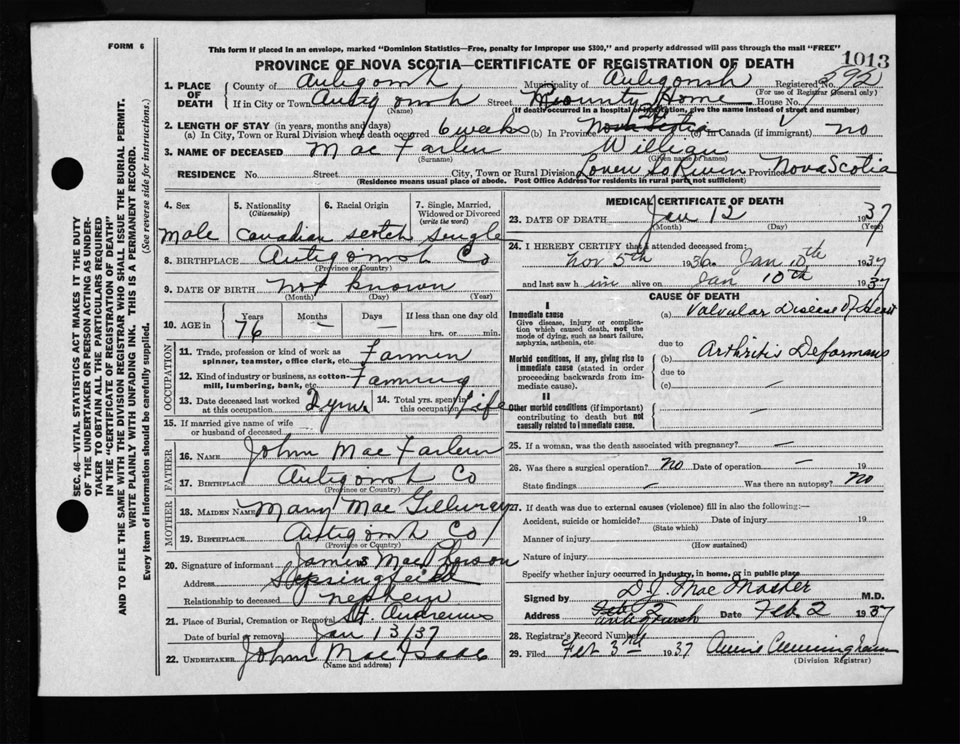 FORM 6
This form if placed in an envelope, marked "Dominion Statistics—Free, penalty for improper use $300," and properly addressed will pass through the mail "FREE"
PROVINCE OF NOVA SCOTIA—CERTIFICATE OF REGISTRATION OF DEATH
1013
SEC. 46—VITAL STATISTICS ACT MAKES IT THE DUTY
OF THE UNDERTAKER OR PERSON ACTING AS UNDER-
TAKER TO OBTAIN ALL THE PARTICULARS REQUIRED
IN THE "CERTIFICATE OF REGISTRATION OF DEATH"
AND TO FILE THE SAME WITH THE DIVISION REGISTRAR WHO SHALL ISSUE THE BURIAL PERMIT.
WRITE PLAINLY WITH UNFADING INK. THIS IS A PERMANENT RECORD.
Every item of information should be carefully supplied. (See reverse side for instructions.)
1. PLACE OF DEATH
County of Antigonish Municipality of Antigonish Registered No. 292
(For use of Registrar General only)
If in City or Town Antigonish Street County Home House No.
(Name) (If death occurred in a hospital or institution, give the name instead of street and number)
2. LENGTH OF STAY (in years, months and days)
(a) In City, Town or Rural Division where death occurred 6 weeks (b) In Province Nova Scotia (c) in Canada (if immigrant) no
3. NAME OF DECEASED Mac Farlen William
(Surname) (Given name or names)
RESIDENCE No. Street City, Town or Rural Division Lower So River Province Nova Scotia
(Residence means usual place of abode. Post Office Address for residents in rural parts not sufficient)
4. Sex Male
5. Nationality (Citizenship) Canadian
6. Racial Origin Scotch
7. Single, Married, Widowed or Divorced (write the word) Single
8. BIRTHPLACE Antigonish Co
(Province or Country)
9. DATE OF BIRTH not known
(Month) (Day) (Year)
10. AGE in Years 76 Months — Days — If less than one day old
hrs. or min.
OCCUPATION
11. Trade, profession or kind of work as spinner, teamster, office clerk, etc. Farmer
12. Kind of industry or business, as cotton-mill, lumbering, bank, etc. Farming
13. Date deceased last worked at this occupation
14. Total yrs. spent in this occupation Life
15. If married give name of wife or husband of deceased —
FATHER
16. NAME John Mac Farlen
17. BIRTHPLACE Antigonish Co
(Province or Country)
MOTHER
18. MAIDEN NAME Mary Mac Gillivray
19. BIRTHPLACE Antigonish Co
(Province or Country)
20. Signature of informant James MacPherson
Address Springfield
Relationship to deceased nephew
21. Place of Burial, Cremation or Removal St Andrews
Date of burial or removal Jan 13/37
22. UNDERTAKER John MacIsaac
(Name and address)
MEDICAL CERTIFICATE OF DEATH
23. DATE OF DEATH Jan 12 1937
(Month) (Day) (Year)
24. I HEREBY CERTIFY that I attended deceased from:
Nov 5th 1936 Jan 10th 1937
and last saw him alive on Jan 10th 1937
CAUSE OF DEATH
I
Immediate cause
Give disease, injury or complication which caused death, not the mode of dying, such as heart failure, asphyxia, asthenia, etc.
(a) Valvular Disease of Heart
due to
Morbid conditions, if any, giving rise to immediate cause (stated in order proceeding backwards from immediate cause).
(b) Arthritis Deformans
due to
(c) —
II
Other morbid conditions (if important) contributing to death but not causally related to immediate cause.
—
25. If a woman, was the death associated with pregnancy? —
26. Was there a surgical operation? no Date of operation — 19
State findings — Was there an autopsy? no
27. If death was due to external causes (violence) fill in also the following:—
Accident, suicide or homicide? Date of injury 19
(State which)
Manner of injury
(How sustained)
Nature of injury
Specify whether injury occurred in industry, in home, or in public place
Signed by D.J. MacMaster M.D.
Address Antigonish Date Feb. 2 1937
28. Registrar's Record Number
29. Filed Feb 3rd 1937 Annie Cunningham
(Division Registrar)